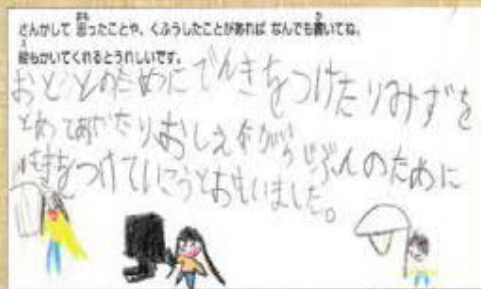 さんかして思ったことや、くふうしたことがあれば なんでも書いてね。
絵もかいてくれるとうれしいです。
おとうとのためにでんきをつけたりみずを
とめてあげたりおしえながらじぶんのために
きをつけていこうとおもいました。